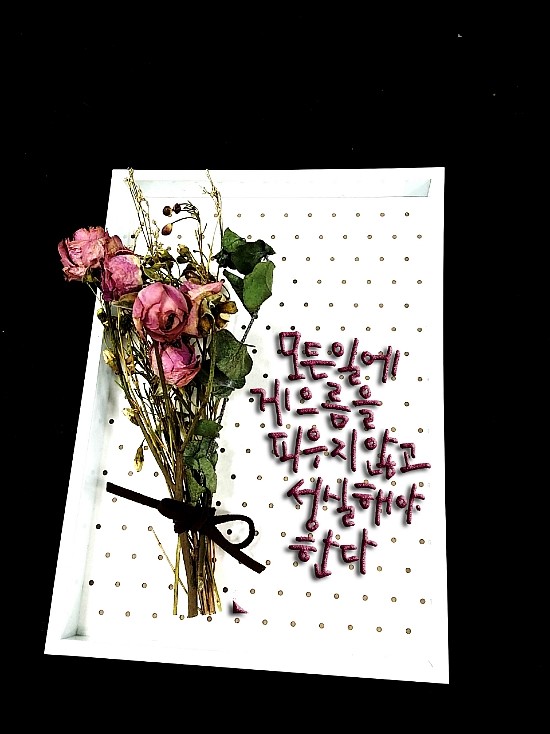 모든일에
게으름을
피우지않고
성실해야
한다